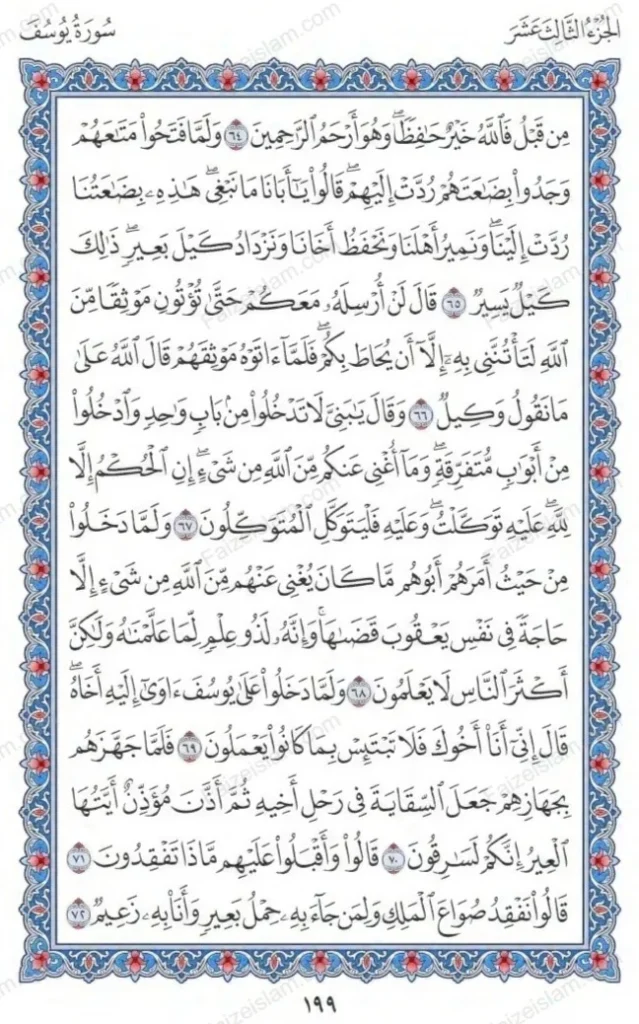 الجُزْءُ الثَّالِثَ عَشَرَ
سُورَةُ يُوسُفَ
مِن قَبْلُ فَٱللَّهُ خَيْرٌ حَٰفِظًا وَهُوَ أَرْحَمُ ٱلرَّٰحِمِينَ ٦٤ وَلَمَّا فَتَحُوا۟ مَتَٰعَهُمْ
وَجَدُوا۟ بِضَٰعَتَهُمْ رُدَّتْ إِلَيْهِمْ قَالُوا۟ يَٰٓأَبَانَا مَا نَبْغِى هَٰذِهِۦ بِضَٰعَتُنَا
رُدَّتْ إِلَيْنَا وَنَمِيرُ أَهْلَنَا وَنَحْفَظُ أَخَانَا وَنَزْدَادُ كَيْلَ بَعِيرٍ ذَٰلِكَ
كَيْلٌ يَسِيرٌ ٦٥ قَالَ لَنْ أُرْسِلَهُۥ مَعَكُمْ حَتَّىٰ تُؤْتُونِ مَوْثِقًا مِّنَ
ٱللَّهِ لَتَأْتُنَّنِى بِهِۦٓ إِلَّآ أَن يُحَاطَ بِكُمْ فَلَمَّآ ءَاتَوْهُ مَوْثِقَهُمْ قَالَ ٱللَّهُ عَلَىٰ
مَا نَقُولُ وَكِيلٌ ٦٦ وَقَالَ يَٰبَنِىَّ لَا تَدْخُلُوا۟ مِنۢ بَابٍ وَٰحِدٍ وَٱدْخُلُوا۟
مِنْ أَبْوَٰبٍ مُّتَفَرِّقَةٍ وَمَآ أُغْنِى عَنكُم مِّنَ ٱللَّهِ مِن شَىْءٍ إِنِ ٱلْحُكْمُ إِلَّا
لِلَّهِ عَلَيْهِ تَوَكَّلْتُ وَعَلَيْهِ فَلْيَتَوَكَّلِ ٱلْمُتَوَكِّلُونَ ٦٧ وَلَمَّا دَخَلُوا۟
مِنْ حَيْثُ أَمَرَهُمْ أَبُوهُم مَّا كَانَ يُغْنِى عَنْهُم مِّنَ ٱللَّهِ مِن شَىْءٍ إِلَّا
حَاجَةً فِى نَفْسِ يَعْقُوبَ قَضَىٰهَا وَإِنَّهُۥ لَذُو عِلْمٍ لِّمَا عَلَّمْنَٰهُ وَلَٰكِنَّ
أَكْثَرَ ٱلنَّاسِ لَا يَعْلَمُونَ ٦٨ وَلَمَّا دَخَلُوا۟ عَلَىٰ يُوسُفَ ءَاوَىٰٓ إِلَيْهِ أَخَاهُ
قَالَ إِنِّىٓ أَنَا۠ أَخُوكَ فَلَا تَبْتَئِسْ بِمَا كَانُوا۟ يَعْمَلُونَ ٦٩ فَلَمَّا جَهَّزَهُم
بِجَهَازِهِمْ جَعَلَ ٱلسِّقَايَةَ فِى رَحْلِ أَخِيهِ ثُمَّ أَذَّنَ مُؤَذِّنٌ أَيَّتُهَا
ٱلْعِيرُ إِنَّكُمْ لَسَٰرِقُونَ ٧٠ قَالُوا۟ وَأَقْبَلُوا۟ عَلَيْهِم مَّاذَا تَفْقِدُونَ ٧١
قَالُوا۟ نَفْقِدُ صُوَاعَ ٱلْمَلِكِ وَلِمَن جَآءَ بِهِۦ حِمْلُ بَعِيرٍ وَأَنَا۠ بِهِۦ زَعِيمٌ ٧٢
١٩٩
Faizeislam.com